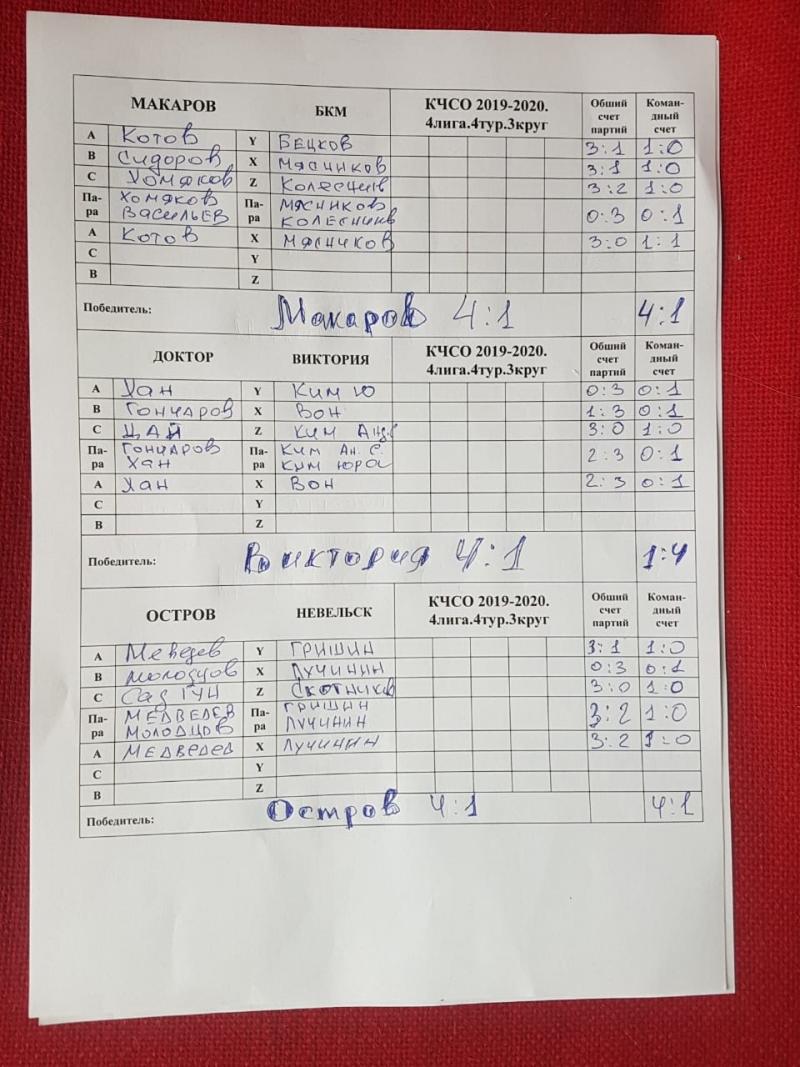 МАКАРОВ БКМ КЧСО 2019-2020. 4лига.4тур.3круг Обший счет партий Коман-дный счет
А Котов Y БЕЦКОВ 3:1 1:0
В Сидоров X МЯСНИКОВ 3:1 1:0
С Хомяков Z Колесник 3:2 1:0
Па-ра Хомяков Васильев Па-ра МЯСНИКОВ КОЛЕСНИК 0:3 0:1
А Котов X МЯСНИКОВ 3:0 1:1
С Y
В Z
Победитель: Макаров 4:1 4:1
ДОКТОР ВИКТОРИЯ КЧСО 2019-2020. 4лига.4тур.3круг Обший счет партий Коман-дный счет
А Хан Y Ким Ю 0:3 0:1
В Гончаров X Вон 1:3 0:1
С ЦАЙ Z Ким 3:0 1:0
Па-ра Гончаров Хан Па-ра Ким Ан. С. Ким Юра 2:3 0:1
А Хан X Вон 2:3 0:1
С Y
В Z
Победитель: Виктория 4:1 1:4
ОСТРОВ НЕВЕЛЬСК КЧСО 2019-2020. 4лига.4тур.3круг Обший счет партий Коман-дный счет
А Y ГРИШИН 3:1 1:0
В Молодцов X ЛУЧИНИН 0:3 0:1
С Сад ГУН Z Скотников 3:0 1:0
Па-ра МЕДВЕДЕВ МОЛОДЦОВ Па-ра ГРИШИН ЛУЧИНИН 3:2 1:0
А МЕДВЕДЕВ X ЛУЧИНИН 3:2 1:0
С Y
В Z
Победитель: Остров 4:1 4:1